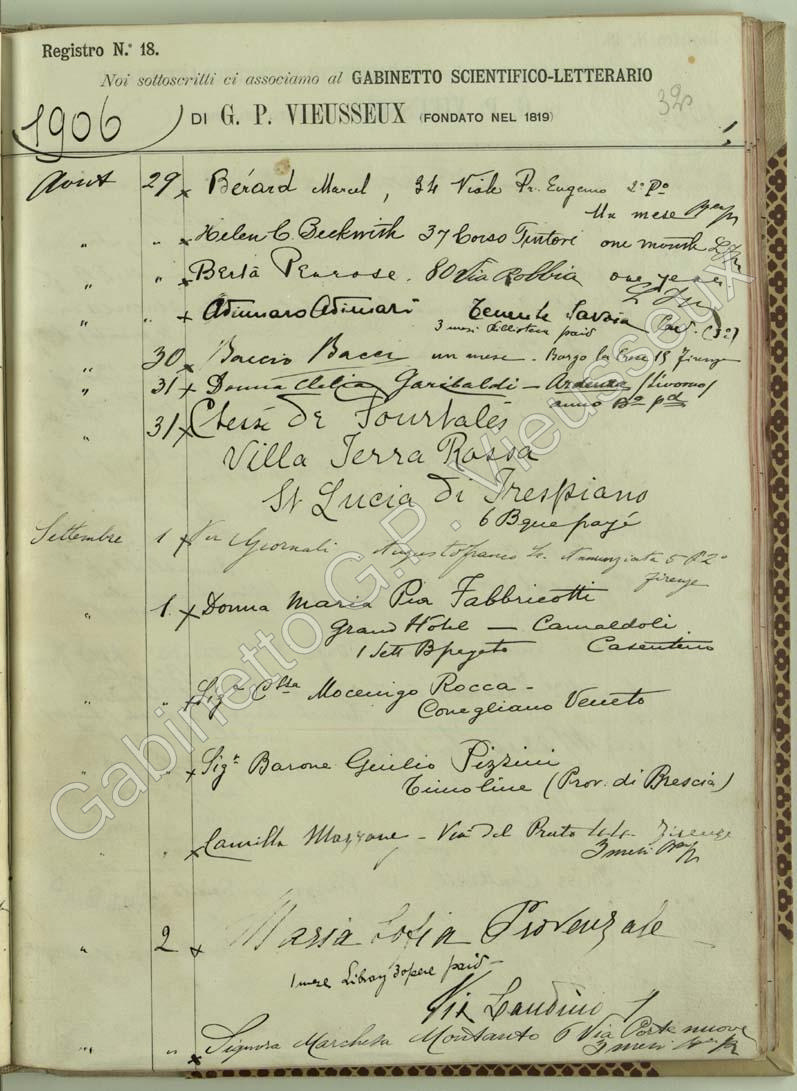 Registro N.º 18.
Noi sottoscritti ci associamo al GABINETTO SCIENTIFICO-LETTERARIO
1906 DI G. P. VIEUSSEUX (FONDATO NEL 1819)
1.
Avout 29 x Bérard Marcel, 34 Viale Pr. Eugenio 2º Pº
Un mese
" " x Helen C. Beckwith 37 Corso Tintori one month
" " x Berta Penrose. 80 Via Robbia one year
" " x Adimaro Adimari Tenente Savoia Cav.
3 mesi paid
" 30 x Baccio Bacci un mese. Borgo la Croce Firenze
" 31 x Donna Clelia Garibaldi – Ardenza (Livorno)
anno Bº pd
" 31 x Ctesse de Pourtalès
Villa Terra Rossa
St Lucia di Trespiano
6 B que payé
Settembre 1 x Giornali Annunziata 5 P 2º
Firenze
" 1. x Donna Maria Pia Fabbricotti
Grand Hotel — Camaldoli
1 Sett B pagato Casentino
" " x Sigra Ctssa Mocenigo Rocca –
Conegliano Veneto
" " x Sigr Barone Giulio Pizzini
Timoline (Prov. di Brescia)
" " x Camilla – Via del Prato 44. Firenze
3 mesi
" 2 x Maria Sofia Provenzale
1 mese Library 3 opere paid –
Via Landino 7
" " x Signora Marchesa Montauto 6 Via Porte nuove
3 mesi
Gabinetto G.P. Vieusseux